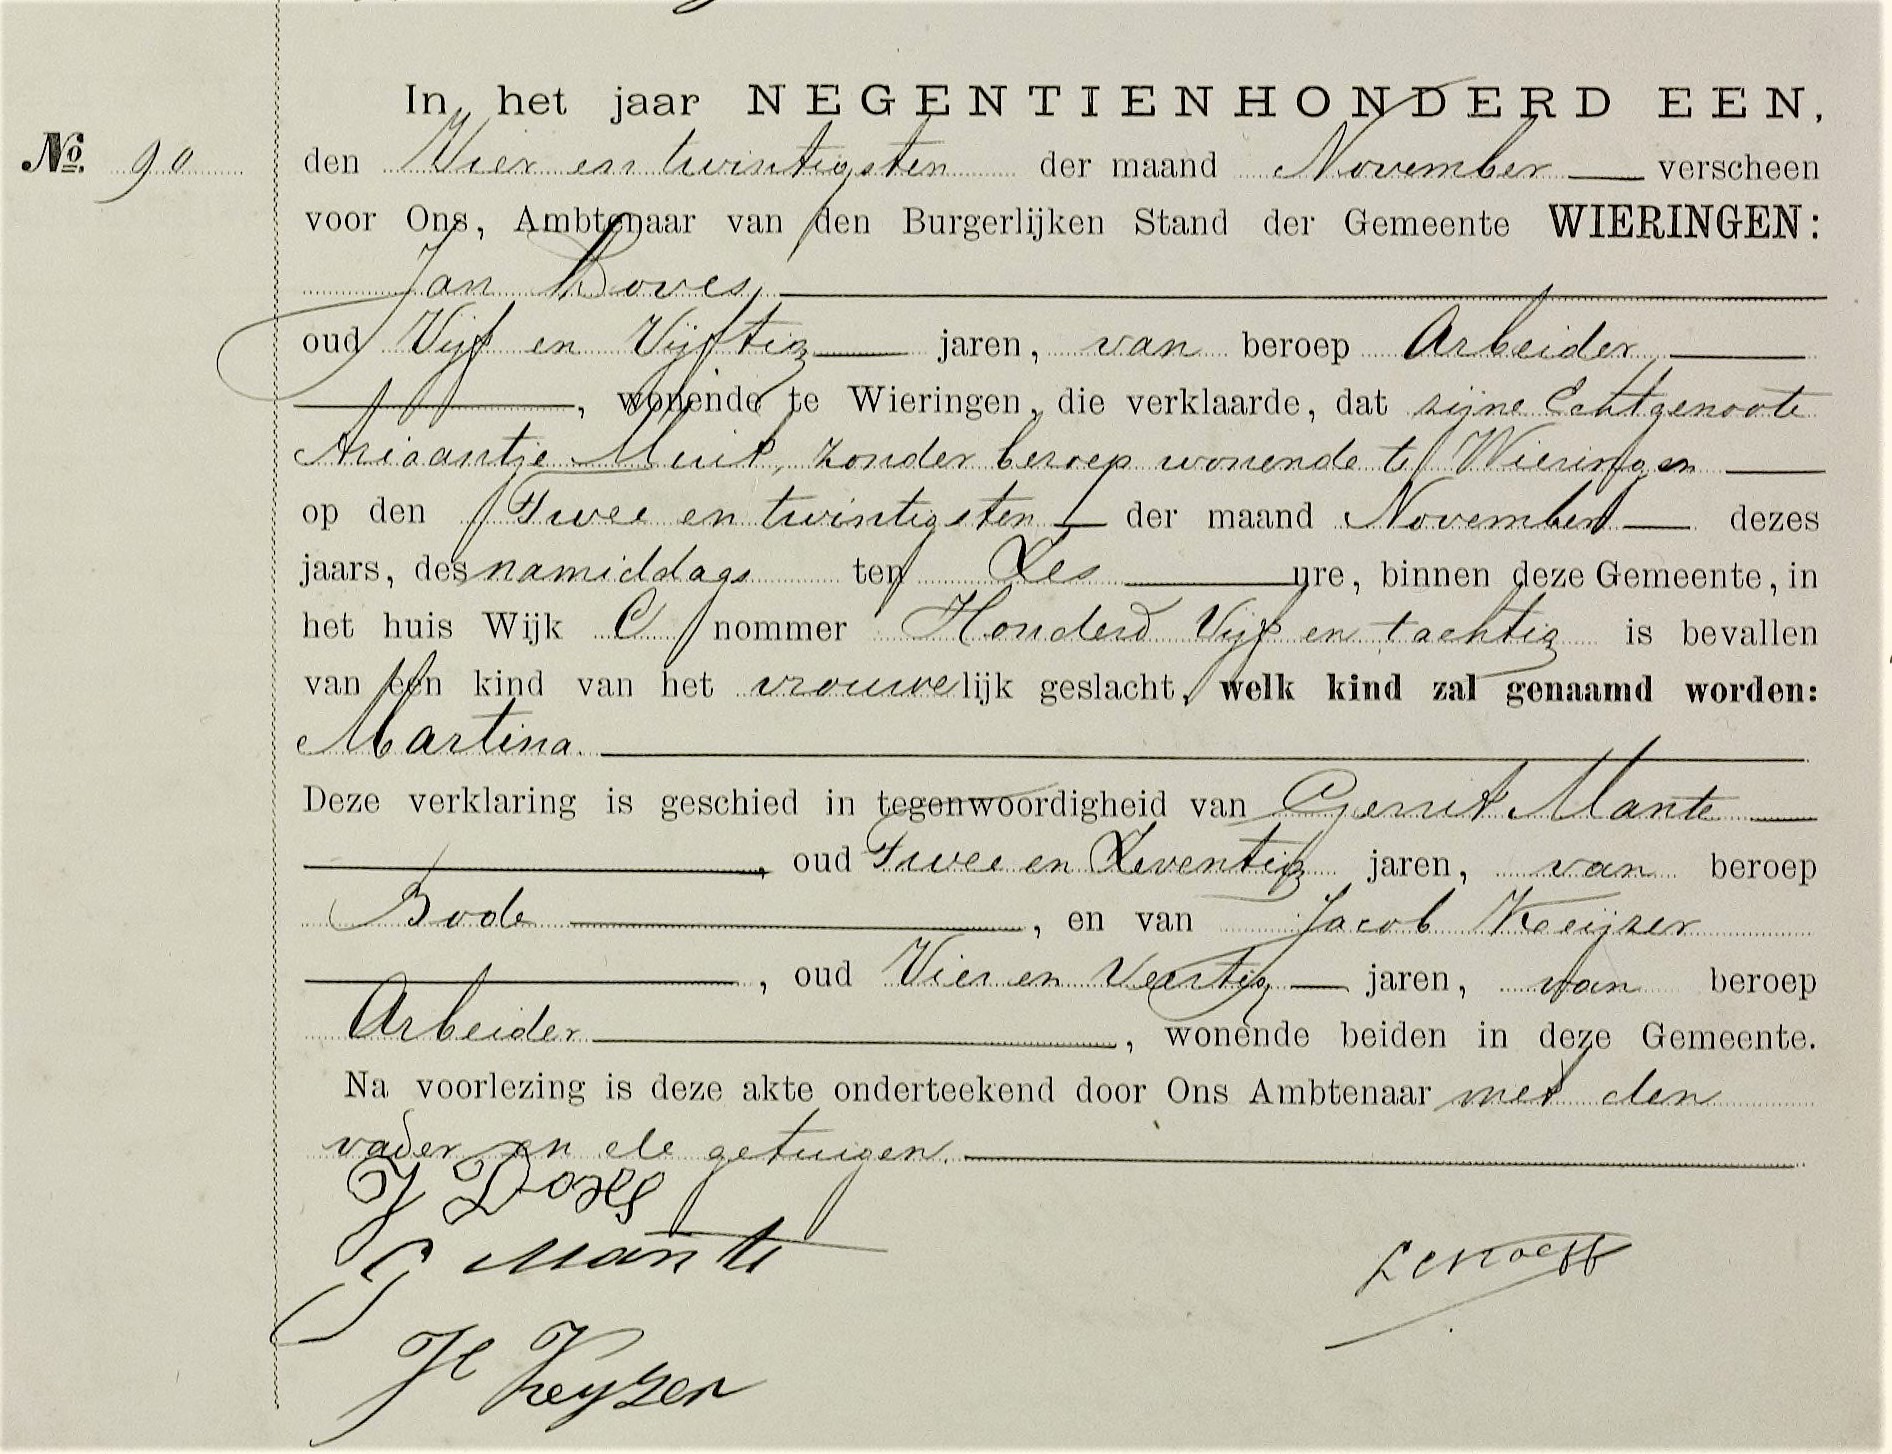 In het jaar NEGENTIENHONDERD EEN,
No. 90 den Vier en twintigsten der maand November verscheen
voor Ons, Ambtenaar van den Burgerlijken Stand der Gemeente WIERINGEN:
Jan Doves,
oud Vijf en Vijftig jaren, van beroep Arbeider
, wonende te Wieringen, die verklaarde, dat zijne Echtgenoote
Ariaantje Muit, zonder beroep wonende te Wieringen
op den Twee en twintigsten der maand November dezes
jaars, des namiddags ten Zes ure, binnen deze Gemeente, in
het huis Wijk C nommer Honderd Vijf en tachtig is bevallen
van een kind van het vrouwelijk geslacht, welk kind zal genaamd worden:
Martina.
Deze verklaring is geschied in tegenwoordigheid van Gerrit Mante
, oud Twee en Zeventig jaren, van beroep
Bode , en van Jacob Keijzer
, oud Vier en Veertig jaren, van beroep
Arbeider , wonende beiden in deze Gemeente.
Na voorlezing is deze akte onderteekend door Ons Ambtenaar met den
vader en de getuigen.
J Doves
G Mante
Jb Keyzer